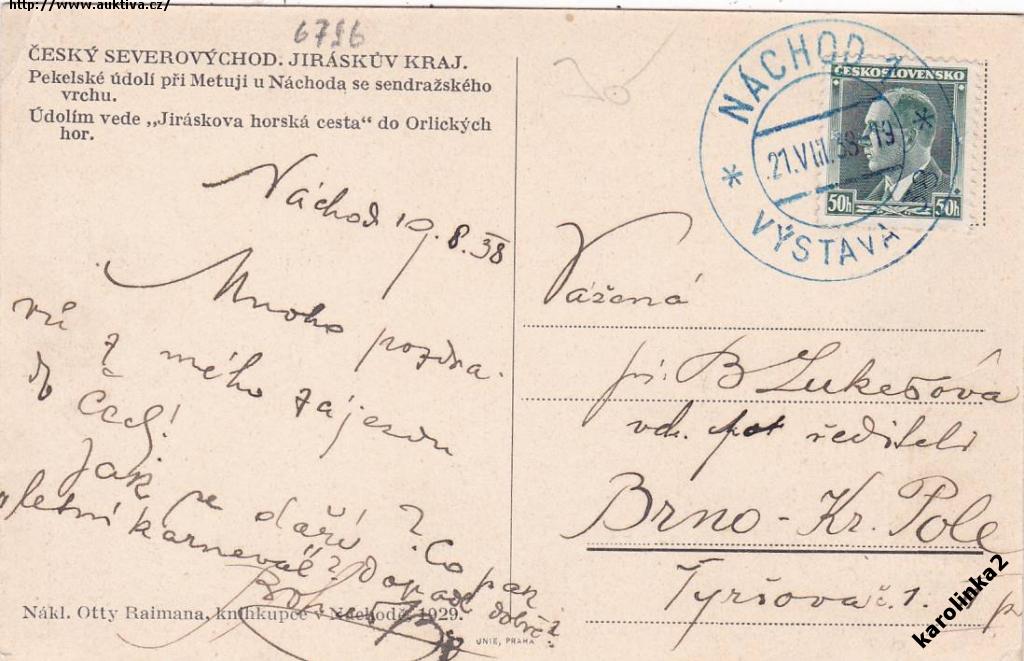 http://www.auktiva.cz/
6796
ČESKÝ SEVEROVÝCHOD. JIRÁSKŮV KRAJ.
Pekelské údolí při Metuji u Náchoda se sendražského
vrchu.
Údolím vede „Jiráskova horská cesta“ do Orlických
hor.
NÁCHOD 1
21.VIII.38-19
* *
VÝSTAVA
ČESKOSLOVENSKO
50h 50h
Náchod 19.8.38
Mnoho pozdra-
vů z mého zájezdu
do Čech!
Jak se daří? Co pak
„letní karneval“? Dopadl dobře?
Vážená
pí. B Lukešová
vd. řediteli
Brno - Kr. Pole
Tyršova č. 1.
Nákl. Otty Raimana, knihkupce v Náchodě. 1929.
UNIE, PRAHA
karolinka2